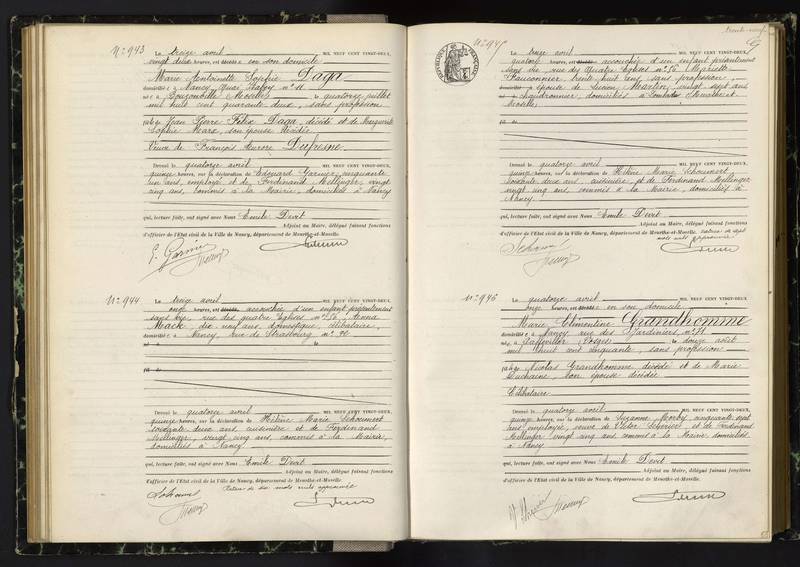 N° 943
Le treize avril MIL NEUF CENT VINGT-DEUX,
vingt deux heures, est décédée en son domicile
Marie Antoinette Sophie Daga
domiciliée à Nancy, Quai
née à Bouzonville (Moselle) le quatorze juillet
mil huit cent quarante deux, sans profession
fille de Jean Pierre Félix Daga, décédé et de Marguerite
Sophie Marx, son épouse décédée
Veuve de François Aurore Dufresne
Dressé le quatorze avril MIL NEUF CENT VINGT-DEUX,
quinze heures, sur la déclaration de Edouard Garnier, cinquante
un ans, employé et de Ferdinand Mellinger, vingt
cinq ans, commis à la Mairie, domiciliés à Nancy
qui, lecture faite, ont signé avec Nous Emile Devit
Adjoint au Maire, délégué faisant fonctions
d'officier de l'Etat civil de la Ville de Nancy, département de Meurthe-et-Moselle.
E. Garnier
N° 944
Le treize avril MIL NEUF CENT VINGT-DEUX,
onze heures, est décédée accouchée d'un enfant présentement
sans vie, rue des quatre Eglises n° 56, Anna
Mack, dix neuf ans, domestique, célibataire,
domiciliée à Nancy, rue de Strasbourg n°
Dressé le quatorze avril MIL NEUF CENT VINGT-DEUX,
quinze heures, sur la déclaration de Hélène Marie Schouvert
soixante deux ans, cuisinière et de Ferdinand
Mellinger, vingt cinq ans, commis à la Mairie,
domiciliés à Nancy
qui, lecture faite, ont signé avec Nous Emile Devit
Adjoint au Maire, délégué faisant fonctions
d'officier de l'Etat civil de la Ville de Nancy, département de Meurthe-et-Moselle.
Rature de dix mots nuls approuvée
N° 945
Le treize avril MIL NEUF CENT VINGT-DEUX,
quatorze heures, est décédée accouchée d'un enfant présentement
sans vie rue des Quatre Eglises n° 56 Mariette
trente huit ans, sans profession,
épouse de Lucien Martin, vingt sept ans
chaudronnier, domiciliés à Meurthe-et-
Moselle
Dressé le quatorze avril MIL NEUF CENT VINGT-DEUX,
quinze heures, sur la déclaration de Hélène Marie Schouvert
soixante deux ans, cuisinière et de Ferdinand Mellinger
vingt cinq ans, commis à la Mairie, domiciliés à
Nancy
qui, lecture faite, ont signé avec Nous Emile Devit
Adjoint au Maire, délégué faisant fonctions
d'officier de l'Etat civil de la Ville de Nancy, département de Meurthe-et-Moselle. Rature de sept
mots nuls approuvée
N° 946
Le quatorze avril MIL NEUF CENT VINGT-DEUX,
onze heures, est décédée en son domicile
Marie Clémentine Grandhomme
domiciliée à Nancy rue des Jardiniers n°
née à (Vosges) le douze août
mil huit cent cinquante, sans profession
fille de Nicolas Grandhomme décédé et de Marie
son épouse décédée
Célibataire
Dressé le quatorze avril MIL NEUF CENT VINGT-DEUX,
quinze heures, sur la déclaration de Suzanne cinquante sept
ans employée, veuve de Victor et de Ferdinand
Mellinger vingt cinq ans commis à la Mairie domiciliés
à Nancy
qui, lecture faite, ont signé avec Nous Emile Devit
Adjoint au Maire, délégué faisant fonctions
d'officier de l'Etat civil de la Ville de Nancy, département de Meurthe-et-Moselle.